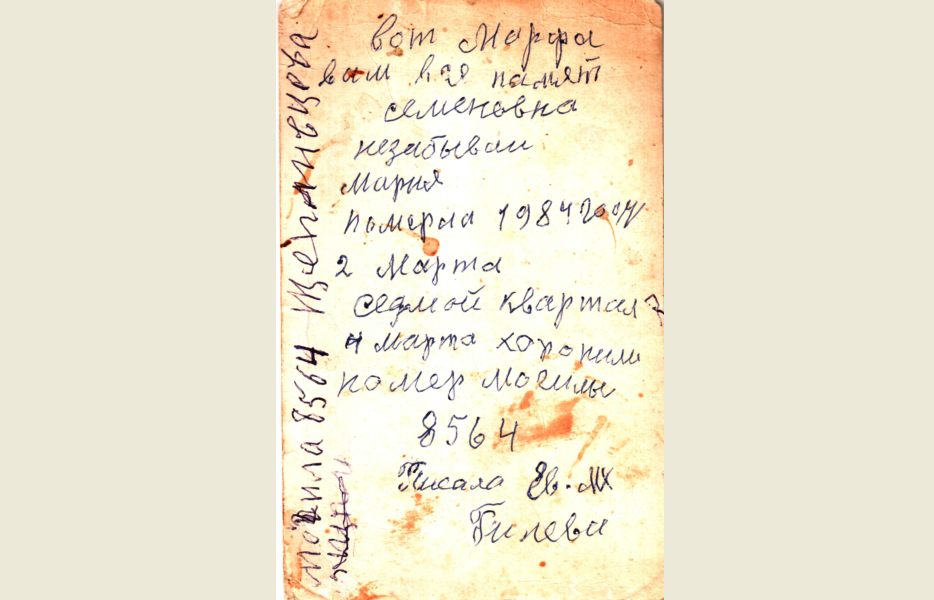 вот Марфа
вам все памят
семеновна
незабываи
Мария
померла 1984 году
2 Марта
седмой квартал 7
4 марта хоронили
номер могилы
8564
Писала Ев. МХ
Гилева
могила 8564